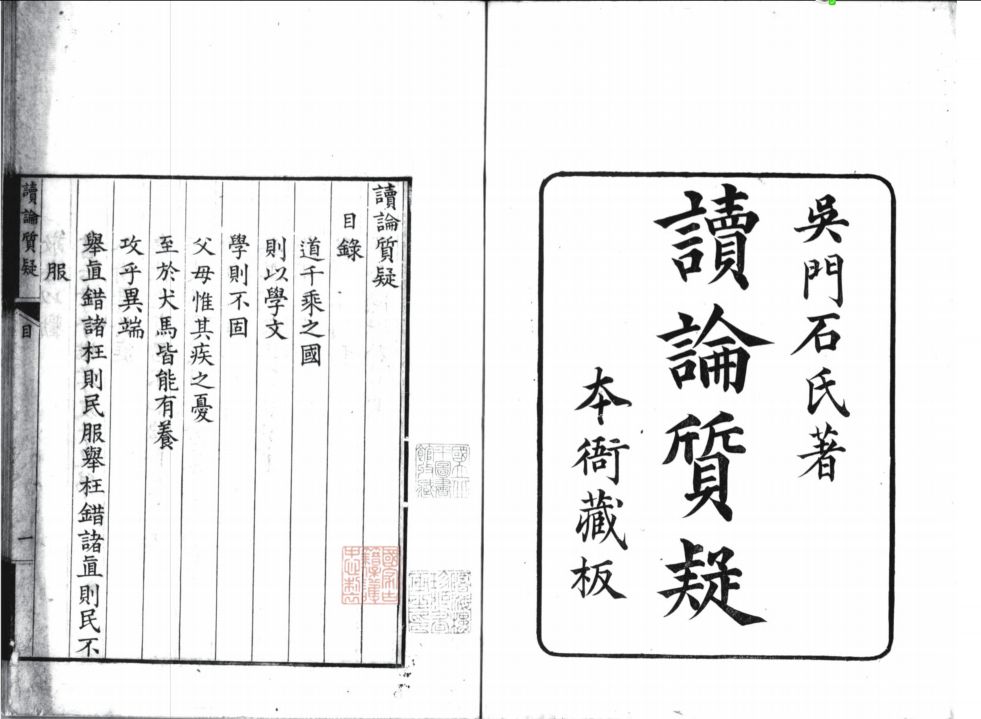 吳門石氏著
讀論質疑
本衙藏板
讀論質疑
目錄
道千乘之國
則以學文
學則不固
父母惟其疾之憂
至於犬馬皆能有養
攻乎異端
舉直錯諸枉則民服舉枉錯諸直則民不
服
讀論質疑
目
一